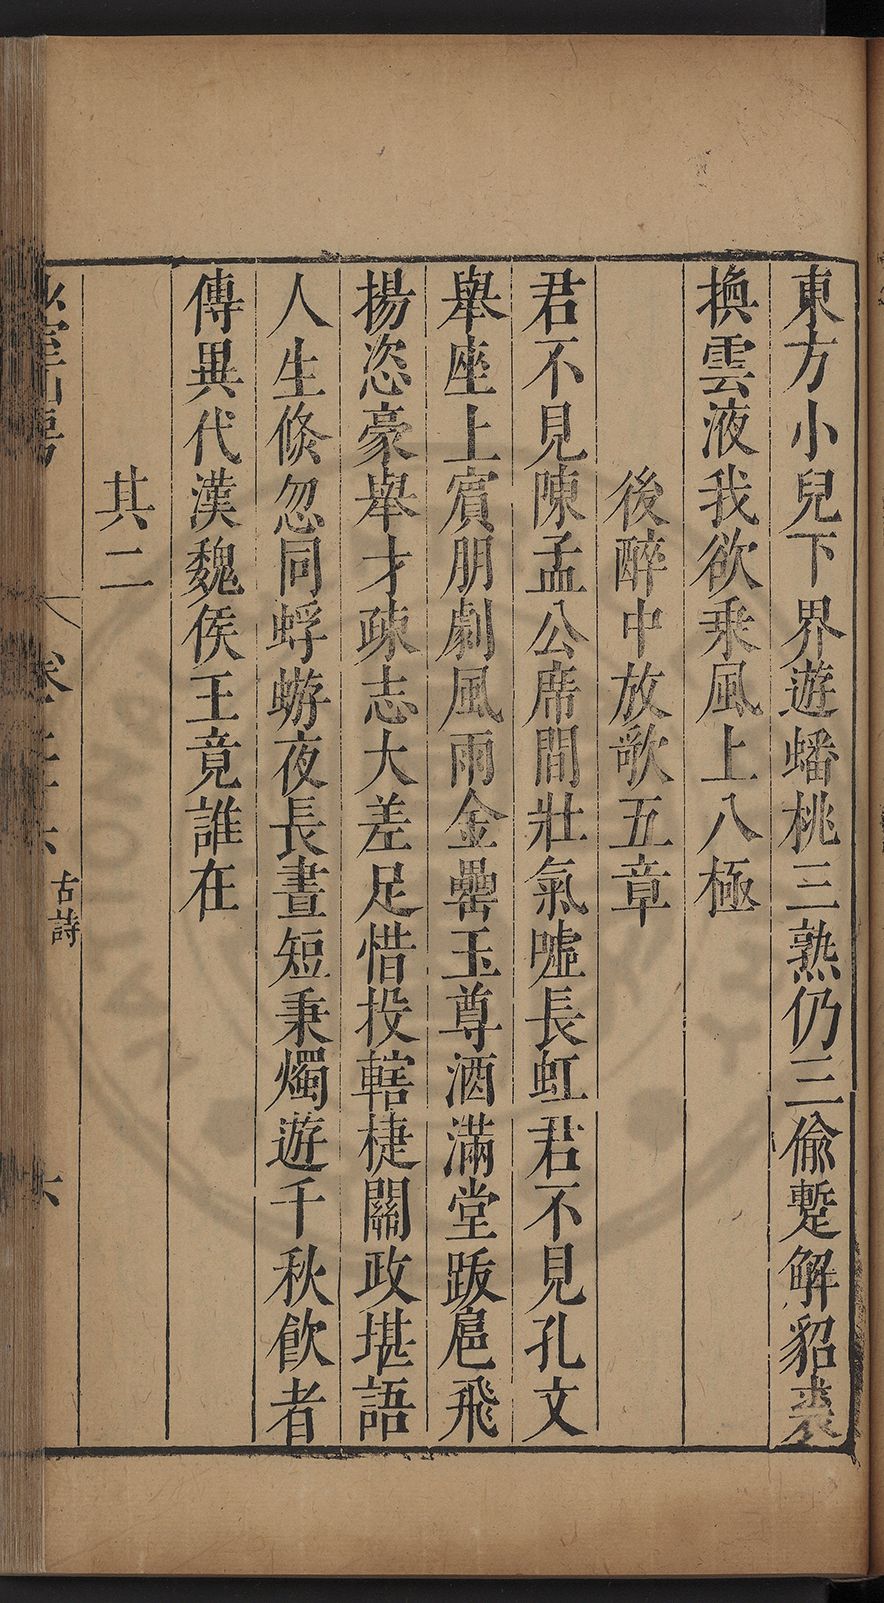 東方小兒下界遊蟠桃三熟仍三偷蹔解貂裘
換雲液我欲乘風上八極
後醉中放歌五章
君不見陳孟公席間壯氣噓長虹君不見孔文
舉座上賓朋劇風雨金罍玉尊酒滿堂跋扈飛
揚恣豪舉才疎志大差足惜投轄揵關政堪語
人生倏忽同蜉蝣夜長晝短秉燭遊千秋飲者
傳異代漢魏侯王竟誰在
其二
古詩